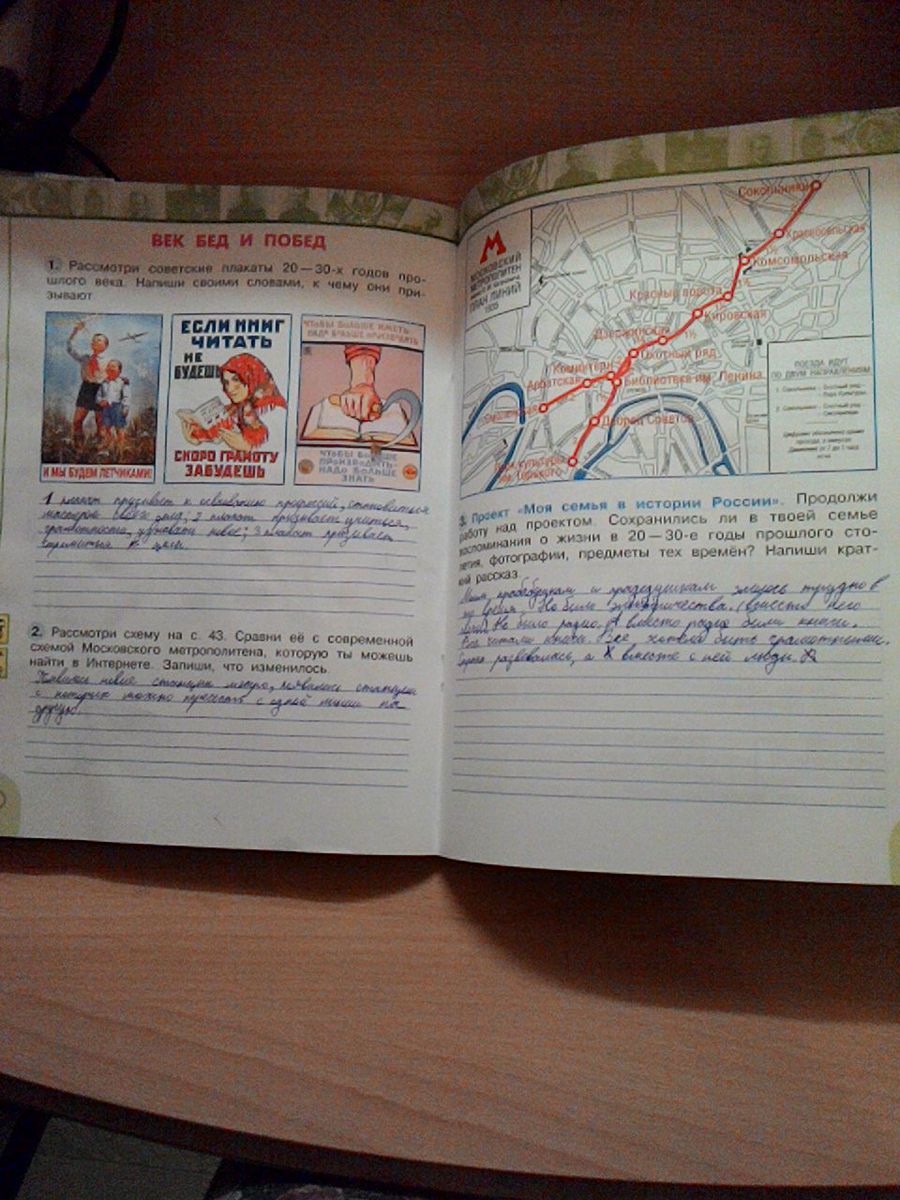 ВЕК БЕД И ПОБЕД
1. Рассмотри советские плакаты 20—30-х годов про-
шлого века. Напиши своими словами, к чему они при-
зывают
И МЫ БУДЕМ ЛЕТЧИКАМИ!
ЕСЛИ КНИГ
ЧИТАТЬ
НЕ
БУДЕШЬ
СКОРО ГРАМОТУ
ЗАБУДЕШЬ
ЧТОБЫ БОЛЬШЕ ИМЕТЬ
НАДО БОЛЬШЕ ПРОИЗВОДИТЬ
ЧТОБЫ БОЛЬШЕ
ПРОИЗВОДИТЬ-
НАДО БОЛЬШЕ
ЗНАТЬ
1 плакат призывает к осваиванию профессий, становиться
мастером своего дела; 2 плакат призывает учиться,
грамотности, узнавать новое; 3 плакат призывает
стремиться к цели.
2. Рассмотри схему на с. 43. Сравни её с современной
схемой Московского метрополитена, которую ты можешь
найти в Интернете. Запиши, что изменилось.
новые станции метро, появились станции
с которых можно с одной линии на
другую.
М
МОСКОВСКИЙ
МЕТРОПОЛИТЕН
ПЛАН ЛИНИЙ
1935
Сокольники
Красносельская
Комсомольская
Красные ворота
Кировская
Дзержинская
Охотный ряд
Коминтерн
Библиотека им. Ленина
Арбатская
Смоленская
Дворец Советов
Парк культуры
им. Горького
ПОЕЗДА ИДУТ
ПО ДВУМ НАПРАВЛЕНИЯМ
3. Проект «Моя семья в истории России». Продолжи
работу над проектом. Сохранились ли в твоей семье
воспоминания о жизни в 20—30-е годы прошлого сто-
летия, фотографии, предметы тех времён? Напиши крат-
кий рассказ.
Моим прабабушкам и прадедушкам жилось трудно в
то время. Не было электричества. (вместо него
Не было радио. А вместо радио были книги.
Все читали книги. Все хотели быть грамотными.
Страна развивалась, а вместе с ней люди.